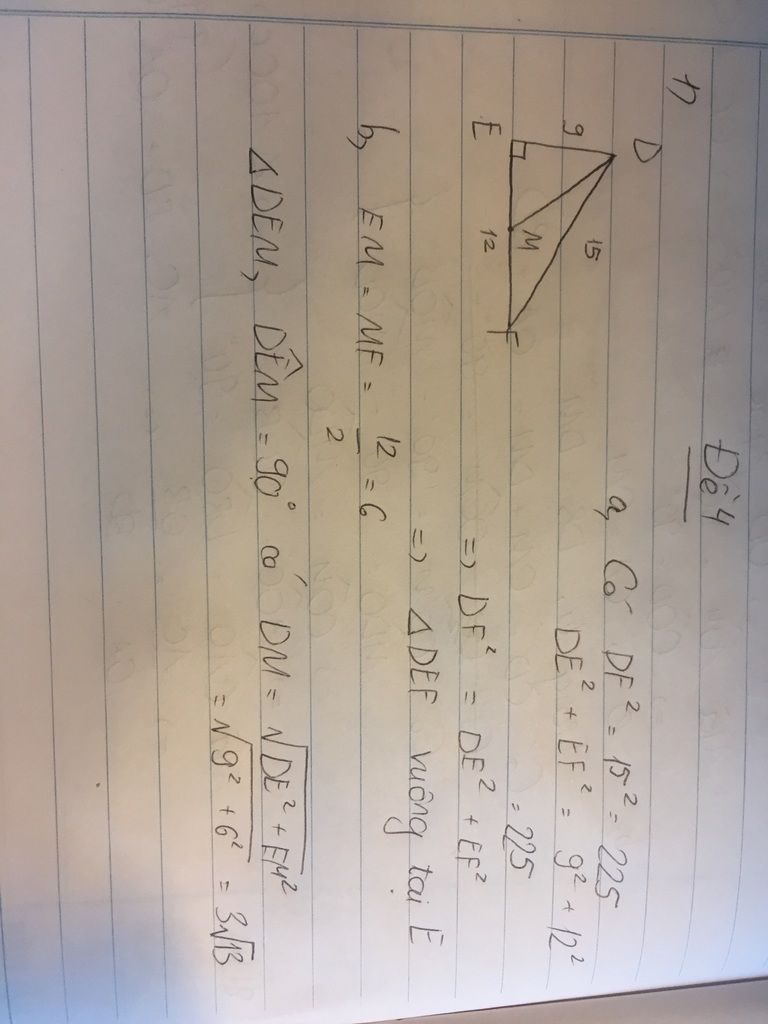 Đề 4
1)
D
9
15
E
12
M
F
a, Có DF² = 15² = 225
DE² + EF² = 9² + 12²
= 225
=> DF² = DE² + EF²
=> ΔDEF vuông tại E
b, EM = MF = 12/2 = 6
ΔDEM, DÊM = 90° có DM = √(DE² + EM²)
= √(9² + 6²) = 3√13